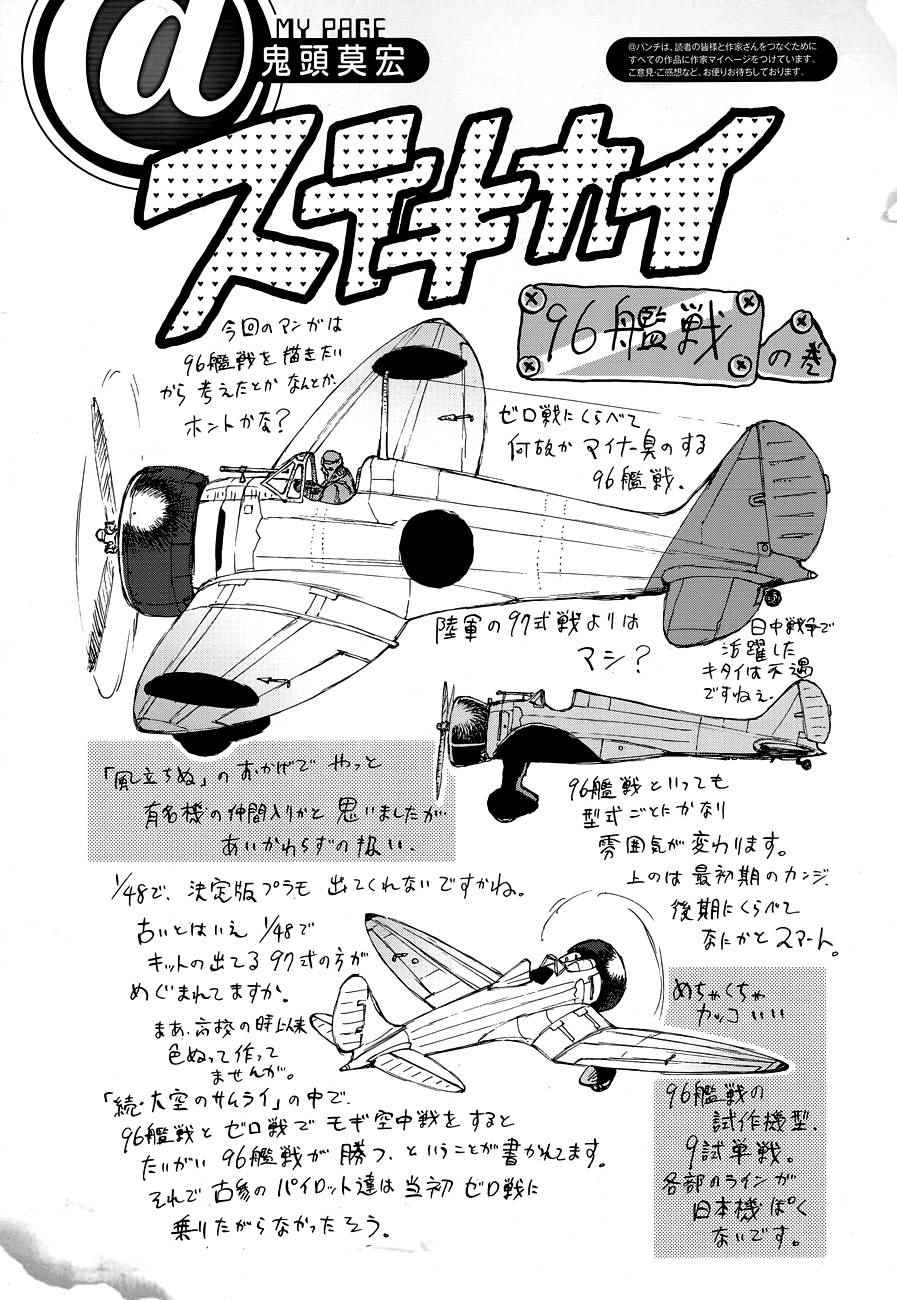 @
MY PAGE
鬼頭莫宏
@バンチは、読者の皆様と作家さんをつなぐために
すべての作品に作家マイページをつけています。
ご意見・ご感想など、お便りお待ちしております。
ステキカイ
96艦戦
の巻
今回のマンガは
96艦戦を描きたい
から考えたとかなんとか。
ホントかな?
ゼロ戦にくらべて
何故かマイナー臭のする
96艦戦。
陸軍の97式戦よりは
マシ?
日中戦争で
活躍した
キタイは不遇
ですねぇ。
「風立ちぬ」のおかげでやっと
有名機の仲間入りかと思いましたが…
あいかわらずの扱い。
96艦戦といっても
型式ごとにかなり
雰囲気が変わります。
上のは最初期のカンジ。
後期にくらべて
なにかとスマート。
1/48で、決定版プラモ出てくれないですかね。
古いとはいえ1/48で
キットの出てる97式の方が
めぐまれてますか。
まあ、高校の時以来
色ぬって作って
ませんが。
めちゃくちゃ
カッコいい
96艦戦の
試作機型、
9試単戦。
各部のラインが
日本機ぽく
ないです。
「続・大空のサムライ」の中で、
96艦戦とゼロ戦でモギ空中戦をすると
たいがい96艦戦が勝つ、ということが書かれてます。
それで古参のパイロット達は当初ゼロ戦に
乗りたがらなかったそう。